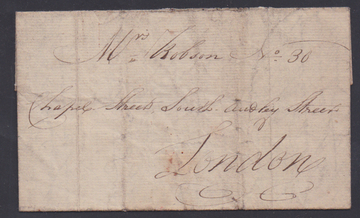 Mrs Robson No. 30
Chapel Street South Audley Street
London